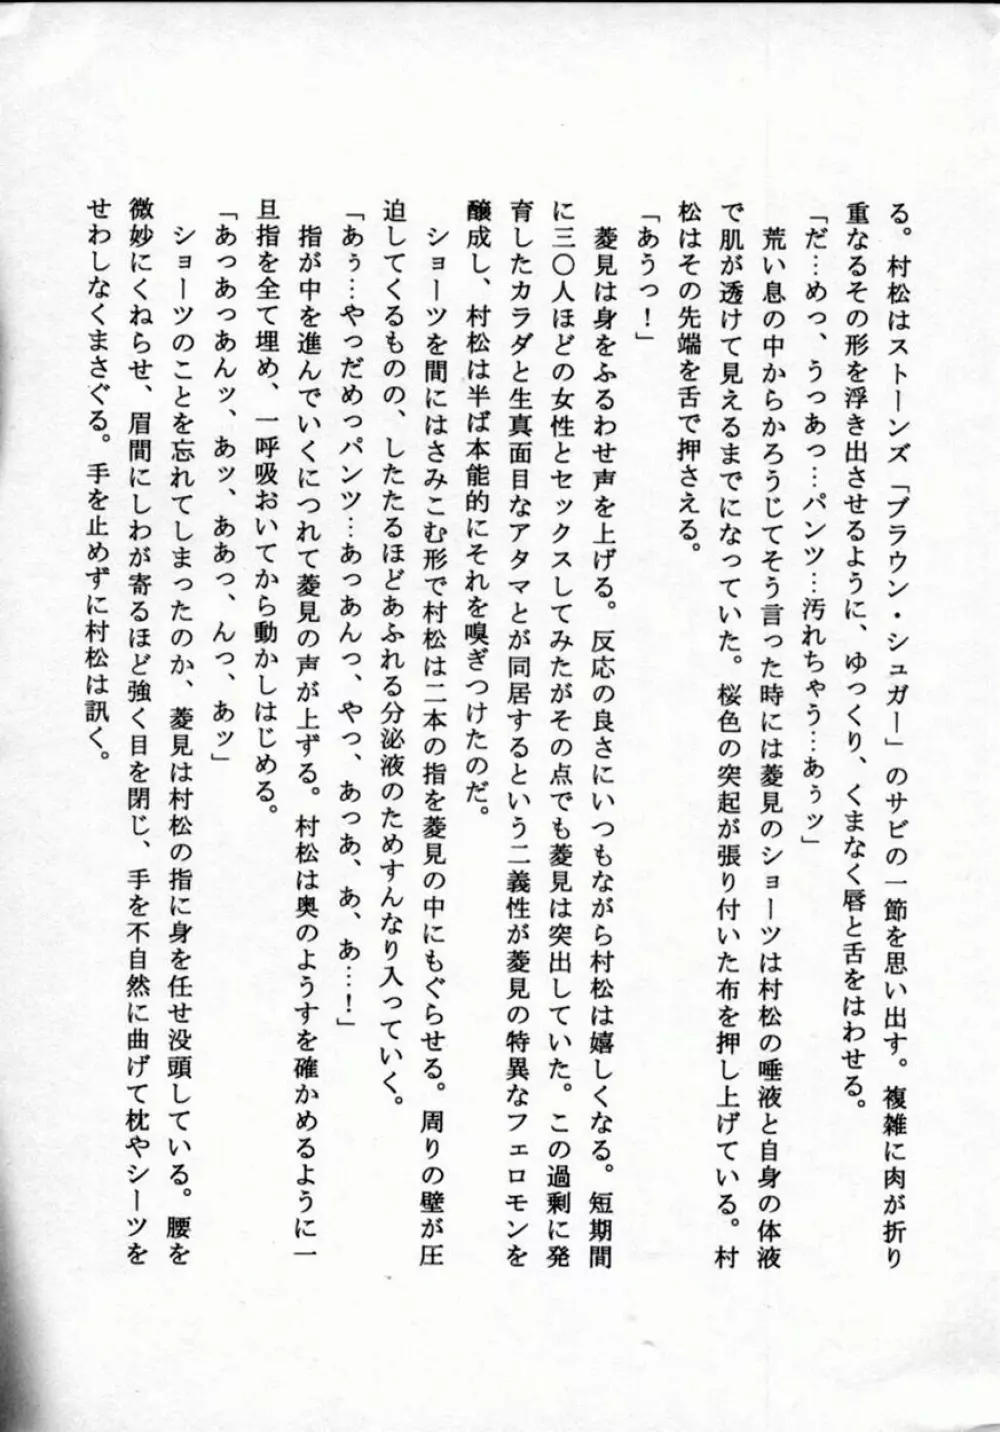 る。村松はストーンズ「ブラウン・シュガー」のサビの一節を思い出す。複雑に肉が折り
重なるその形を浮き出させるように、ゆっくり、くまなく唇と舌をはわせる。
「だ…めっ、うっあっ…パンツ…汚れちゃう…あぅッ」
荒い息の中からかろうじてそう言った時には菱見のショーツは村松の唾液と自身の体液
で肌が透けて見えるまでになっていた。桜色の突起が張り付いた布を押し上げている。村
松はその先端を舌で押さえる。
「あうっ！」
菱見は身をふるわせ声を上げる。反応の良さにいつもながら村松は嬉しくなる。短期間
に三〇人ほどの女性とセックスしてみたがその点でも菱見は突出していた。この過剰に発
育したカラダと生真面目なアタマとが同居するという二義性が菱見の特異なフェロモンを
醸成し、村松は半ば本能的にそれを嗅ぎつけたのだ。
ショーツを間にはさみこむ形で村松は二本の指を菱見の中にもぐらせる。周りの壁が圧
迫してくるものの、したたるほどあふれる分泌液のためすんなり入っていく。
「あぅ…やっだめっパンツ…あっあんっ、やっ、あっあ、あ、あ…！」
指が中を進んでいくにつれて菱見の声が上ずる。村松は奥のようすを確かめるように一
旦指を全て埋め、一呼吸おいてから動かしはじめる。
「あっあっあんッ、あッ、ああっ、んっ、あッ」
ショーツのことを忘れてしまったのか、菱見は村松の指に身を任せ没頭している。腰を
微妙にくねらせ、眉間にしわが寄るほど強く目を閉じ、手を不自然に曲げて枕やシーツを
せわしなくまさぐる。手を止めずに村松は訊く。